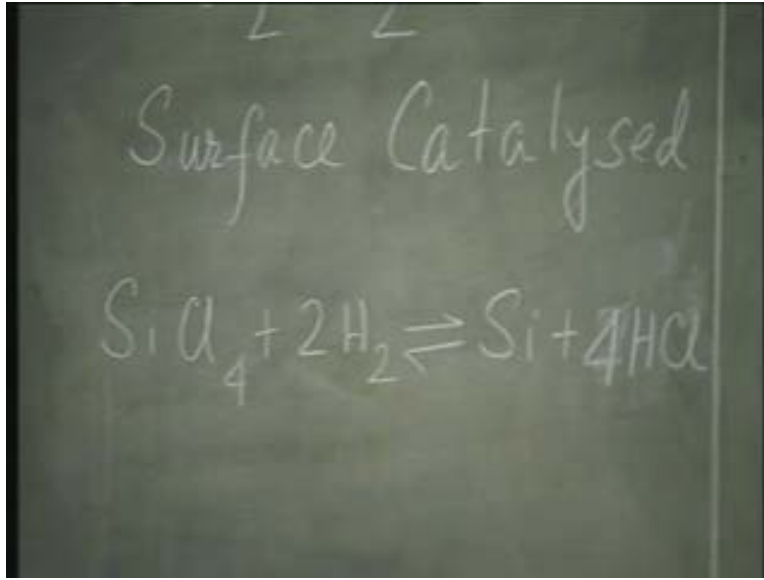 2 2
Surface Catalysed
SiCl₄ + 2H₂ ⇌ Si + 4HCl